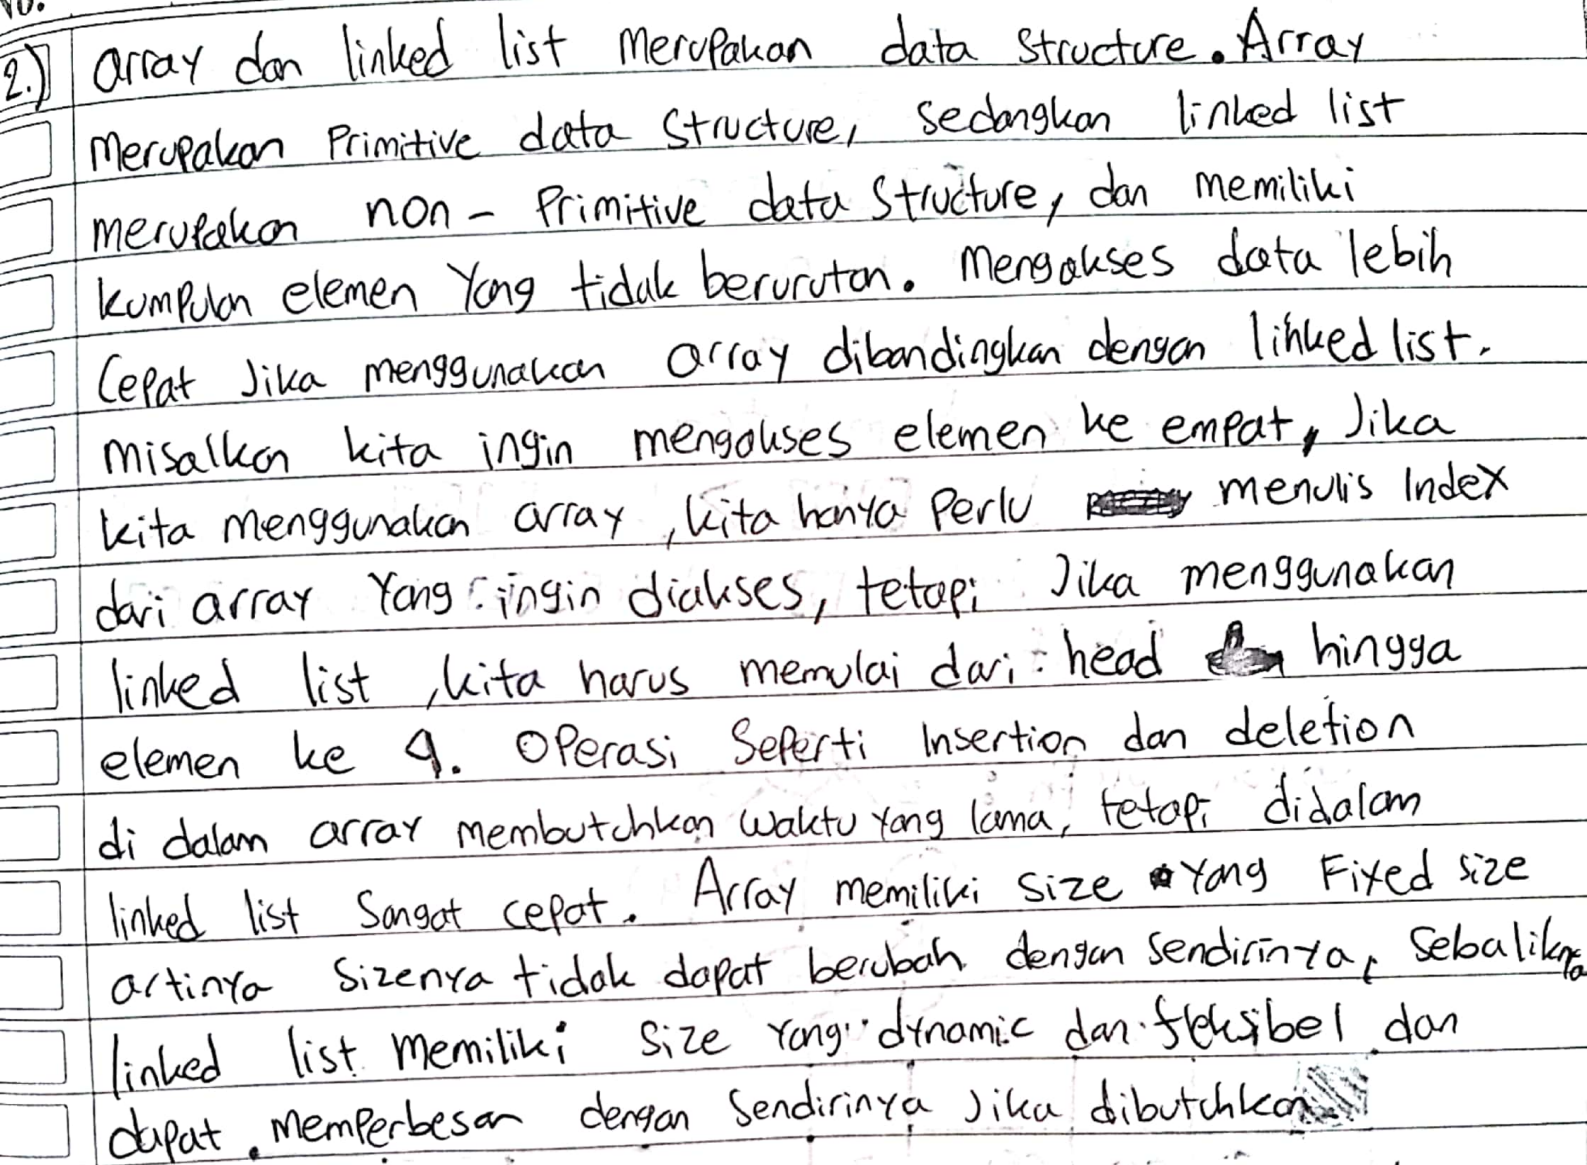 No.
2.) array dan linked list merupakan data structure. Array
merupakan Primitive data structure, sedangkan linked list
merupakan non - Primitive data structure, dan memiliki
kumpulan elemen Yang tidak berurutan. Mengakses data lebih
Cepat Jika menggunakan array dibandingkan dengan linked list.
misalkan kita ingin mengakses elemen ke empat, Jika
kita menggunakan array, kita hanya Perlu menulis Index
dari array Yang ingin diakses, tetapi Jika menggunakan
linked list, kita harus memulai dari head hingga
elemen ke 4. Operasi Seperti Insertion dan deletion
di dalam array membutuhkan waktu yang lama, tetapi didalam
linked list Sangat cepat. Array memiliki size Yang Fixed size
artinya Sizenya tidak dapat berubah dengan sendirinya, Sebaliknya
linked list memiliki Size Yang dynamic dan fleksibel dan
dapat memperbesar dengan Sendirinya Jika dibutuhkan